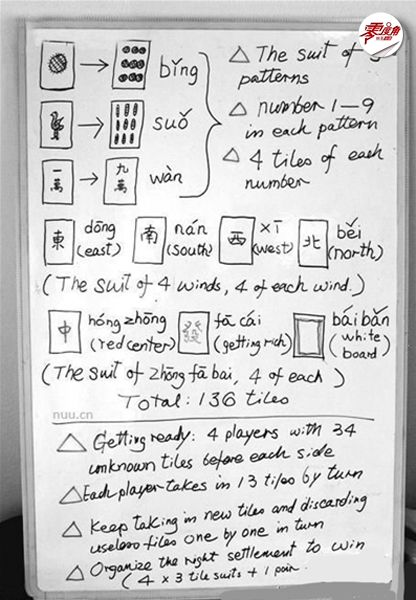 零度角
bǐng
△ The suit of 3 patterns
suǒ
△ number 1—9 in each pattern
一萬 → 九萬 wàn
△ 4 tiles of each number
東 dōng (east) 南 nán (south) 西 xī (west) 北 běi (north)
(The suit of 4 winds, 4 of each wind.)
中 hóng zhōng (red center) 發 fā cái (getting rich) bái bǎn (white board)
(The suit of zhōng fā bai, 4 of each)
Total: 136 tiles
nuu.cn
△ Getting ready: 4 players with 34
unknown tiles before each side
△ Each player takes in 13 tiles by turn
△ Keep taking in new tiles and discarding
useless tiles one by one in turn
△ Organize the right settlement to win
(4 x 3 tile suits + 1 pair.